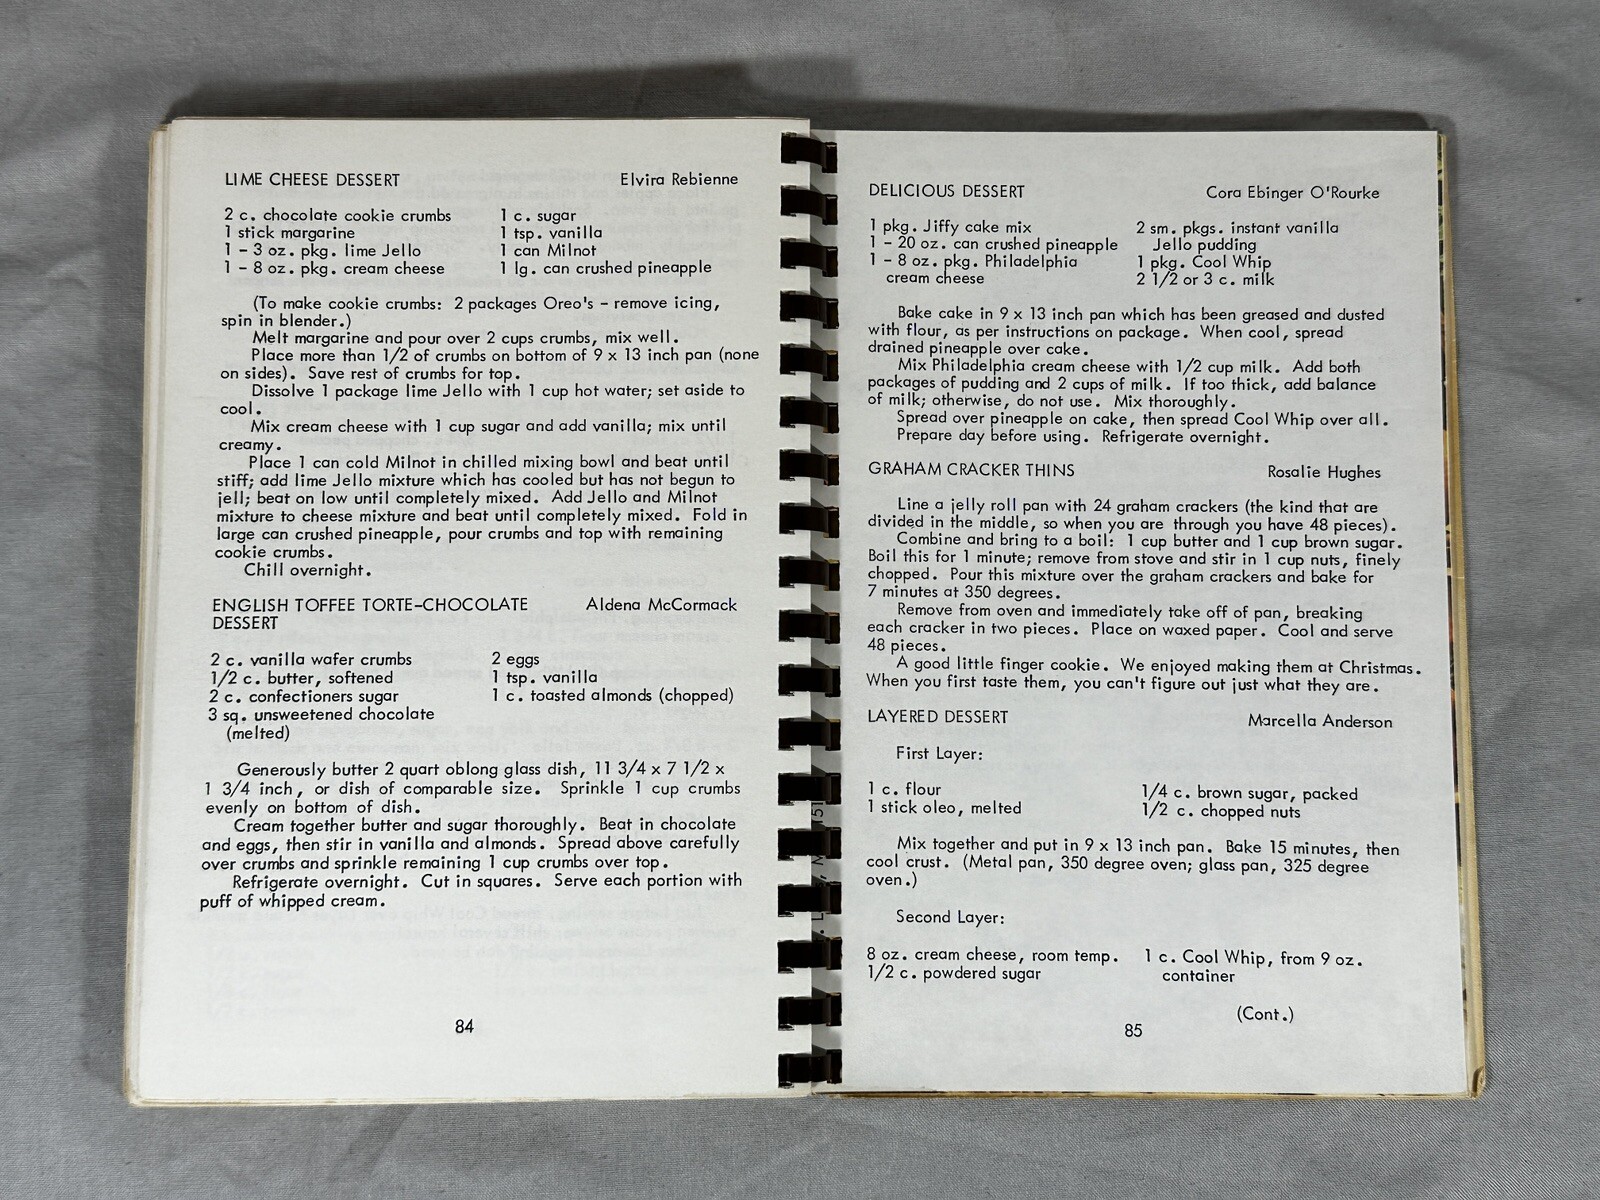 LIME CHEESE DESSERT Elvira Rebienne
2 c. chocolate cookie crumbs 1 c. sugar
1 stick margarine 1 tsp. vanilla
1 - 3 oz. pkg. lime Jello 1 can Milnot
1 - 8 oz. pkg. cream cheese 1 lg. can crushed pineapple
(To make cookie crumbs: 2 packages Oreo's - remove icing,
spin in blender.)
Melt margarine and pour over 2 cups crumbs, mix well.
Place more than 1/2 of crumbs on bottom of 9 x 13 inch pan (none
on sides). Save rest of crumbs for top.
Dissolve 1 package lime Jello with 1 cup hot water; set aside to
cool.
Mix cream cheese with 1 cup sugar and add vanilla; mix until
creamy.
Place 1 can cold Milnot in chilled mixing bowl and beat until
stiff; add lime Jello mixture which has cooled but has not begun to
jell; beat on low until completely mixed. Add Jello and Milnot
mixture to cheese mixture and beat until completely mixed. Fold in
large can crushed pineapple, pour crumbs and top with remaining
cookie crumbs.
Chill overnight.
ENGLISH TOFFEE TORTE-CHOCOLATE Aldena McCormack
DESSERT
2 c. vanilla wafer crumbs 2 eggs
1/2 c. butter, softened 1 tsp. vanilla
2 c. confectioners sugar 1 c. toasted almonds (chopped)
3 sq. unsweetened chocolate
(melted)
Generously butter 2 quart oblong glass dish, 11 3/4 x 7 1/2 x
1 3/4 inch, or dish of comparable size. Sprinkle 1 cup crumbs
evenly on bottom of dish.
Cream together butter and sugar thoroughly. Beat in chocolate
and eggs, then stir in vanilla and almonds. Spread above carefully
over crumbs and sprinkle remaining 1 cup crumbs over top.
Refrigerate overnight. Cut in squares. Serve each portion with
puff of whipped cream.
84
DELICIOUS DESSERT Cora Ebinger O'Rourke
1 pkg. Jiffy cake mix 2 sm. pkgs. instant vanilla
1 - 20 oz. can crushed pineapple Jello pudding
1 - 8 oz. pkg. Philadelphia 1 pkg. Cool Whip
cream cheese 2 1/2 or 3 c. milk
Bake cake in 9 x 13 inch pan which has been greased and dusted
with flour, as per instructions on package. When cool, spread
drained pineapple over cake.
Mix Philadelphia cream cheese with 1/2 cup milk. Add both
packages of pudding and 2 cups of milk. If too thick, add balance
of milk; otherwise, do not use. Mix thoroughly.
Spread over pineapple on cake, then spread Cool Whip over all.
Prepare day before using. Refrigerate overnight.
GRAHAM CRACKER THINS Rosalie Hughes
Line a jelly roll pan with 24 graham crackers (the kind that are
divided in the middle, so when you are through you have 48 pieces).
Combine and bring to a boil: 1 cup butter and 1 cup brown sugar.
Boil this for 1 minute; remove from stove and stir in 1 cup nuts, finely
chopped. Pour this mixture over the graham crackers and bake for
7 minutes at 350 degrees.
Remove from oven and immediately take off of pan, breaking
each cracker in two pieces. Place on waxed paper. Cool and serve
48 pieces.
A good little finger cookie. We enjoyed making them at Christmas.
When you first taste them, you can't figure out just what they are.
LAYERED DESSERT Marcella Anderson
First Layer:
1 c. flour 1/4 c. brown sugar, packed
1 stick oleo, melted 1/2 c. chopped nuts
Mix together and put in 9 x 13 inch pan. Bake 15 minutes, then
cool crust. (Metal pan, 350 degree oven; glass pan, 325 degree
oven.)
Second Layer:
8 oz. cream cheese, room temp. 1 c. Cool Whip, from 9 oz.
1/2 c. powdered sugar container
(Cont.)
85